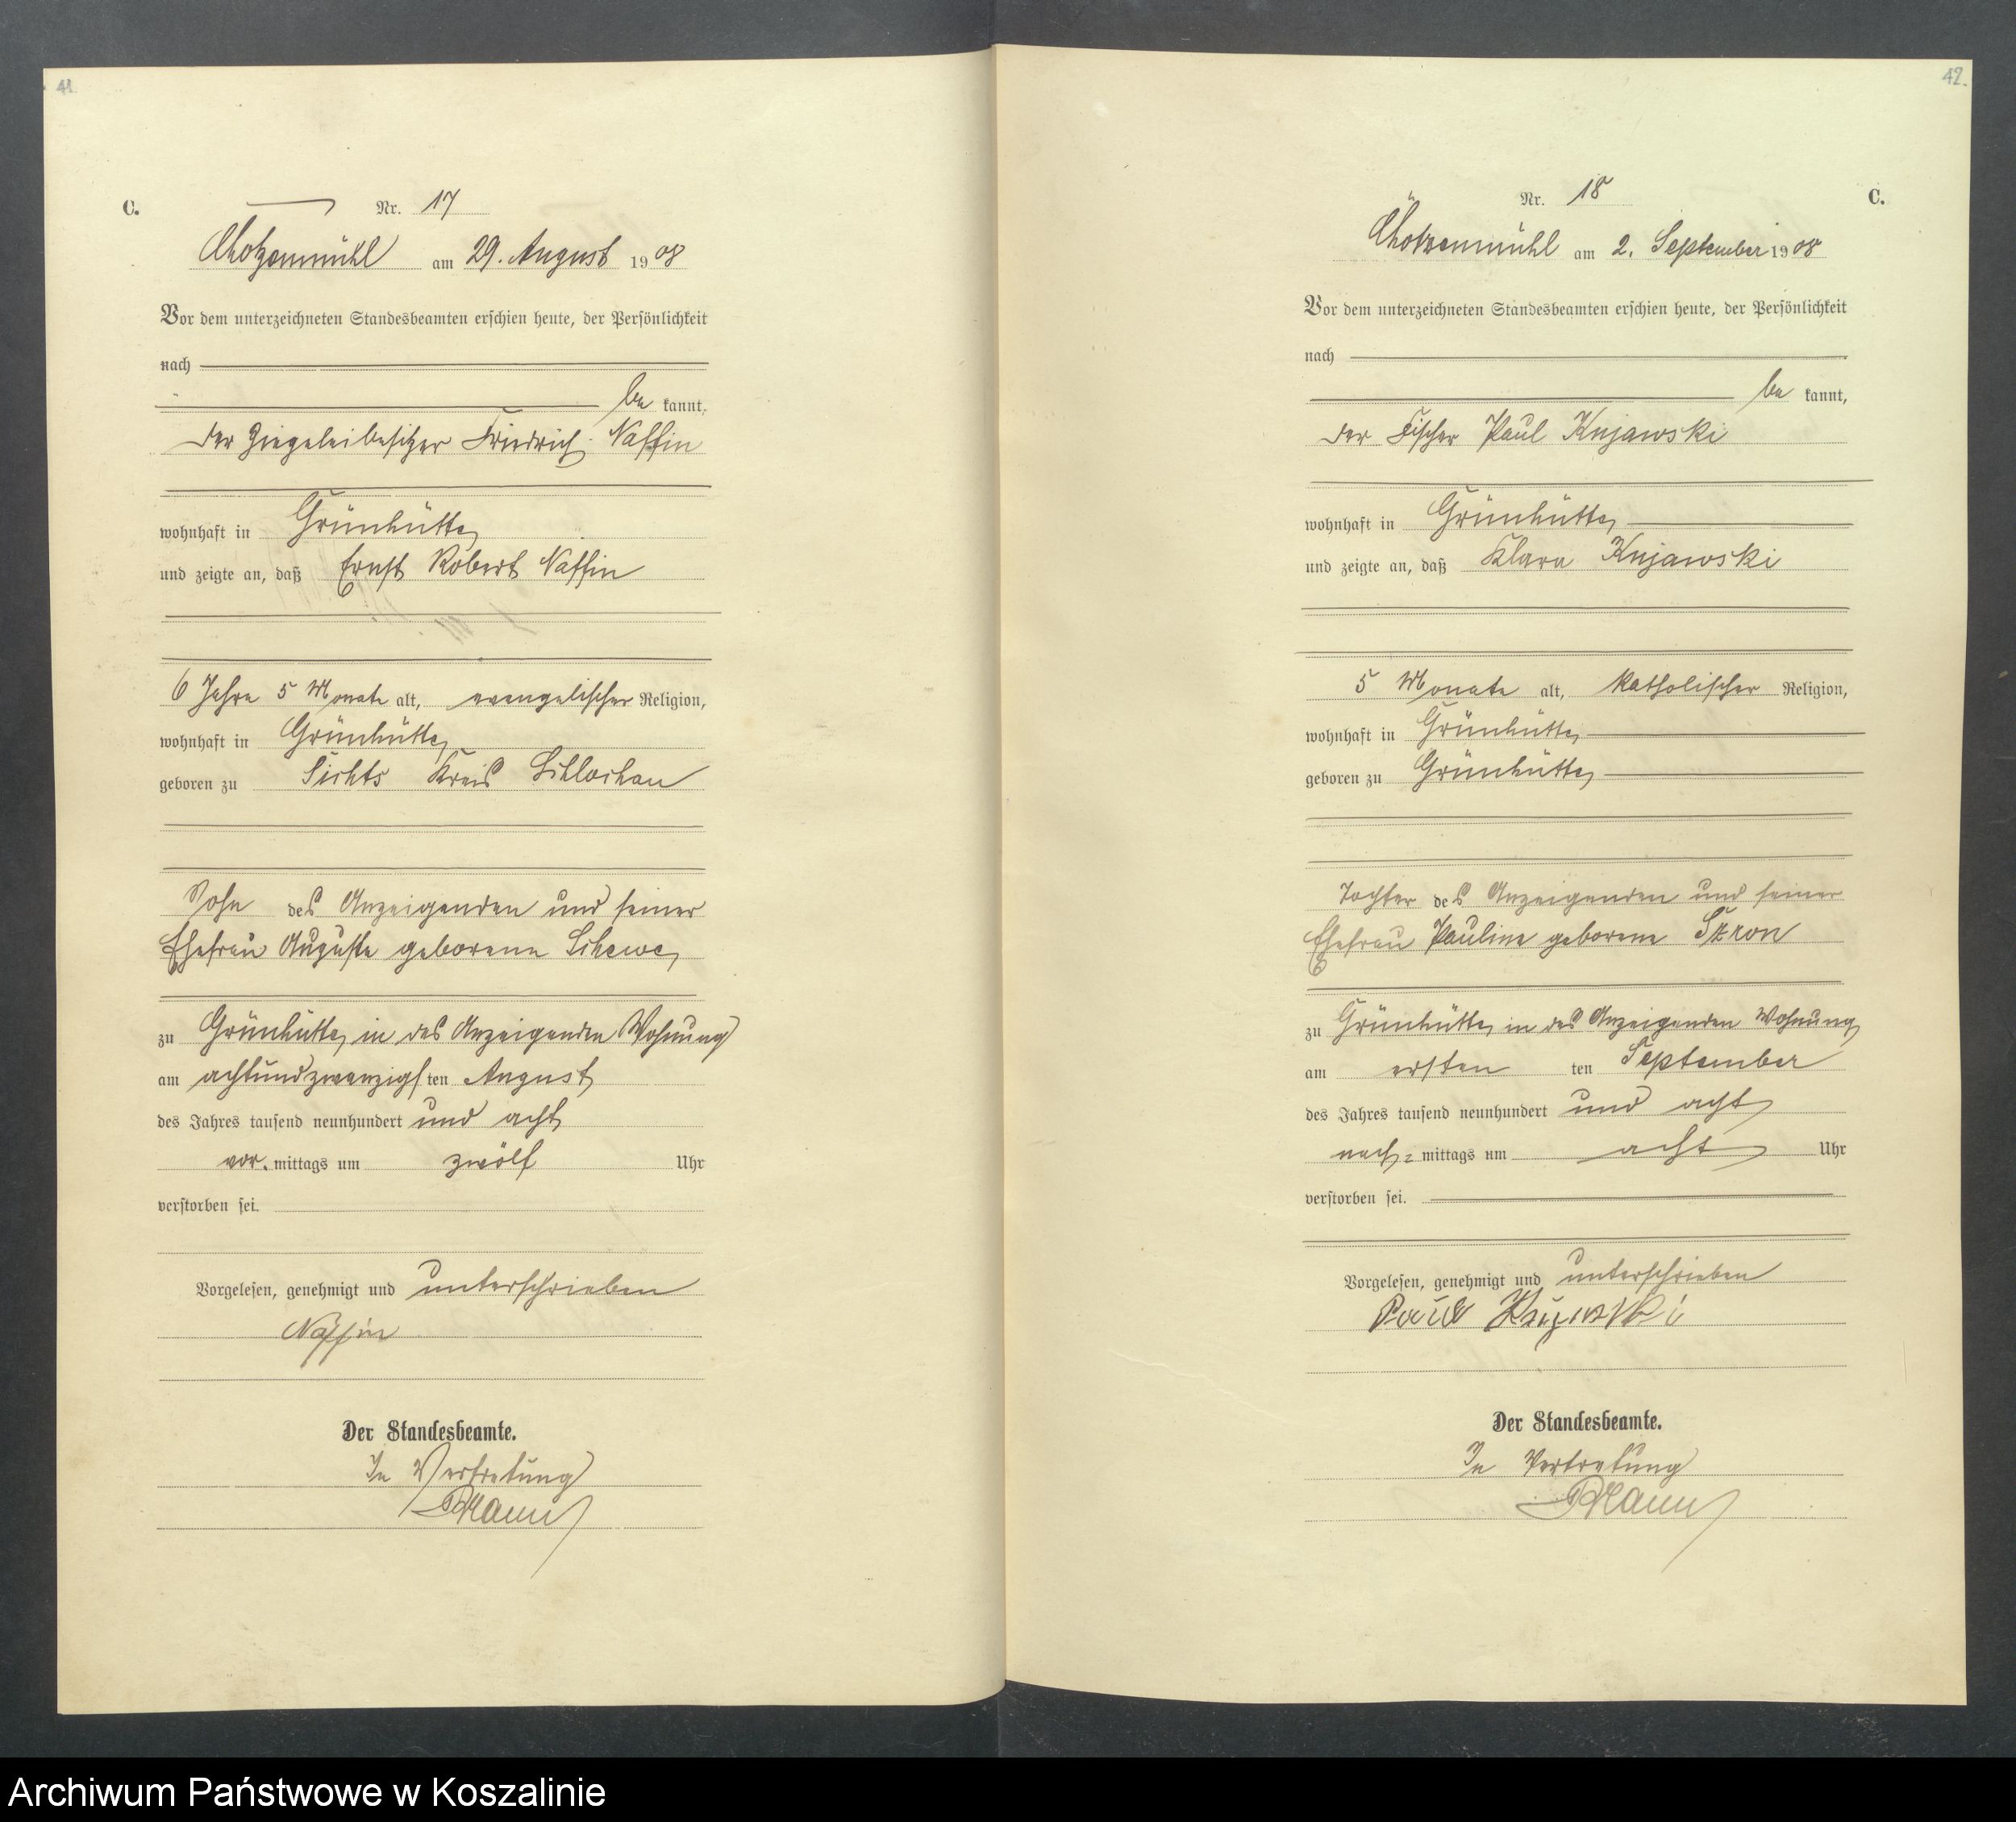 41
C.
Nr. 17
Chotzenmühl am 29. August 1908
Vor dem unterzeichneten Standesbeamten erschien heute, der Persönlichkeit
nach
be kannt,
der Ziegeleibesitzer Friedrich Naffin
wohnhaft in Grünhütte
und zeigte an, daß Ernst Robert Naffin
6 Jahre 5 Monate alt, evangelischer Religion,
wohnhaft in Grünhütte
geboren zu Sichts Kreis Schlochau
Sohn des Anzeigenden und seiner
Ehefrau Auguste geborene Schewe
zu Grünhütte in des Anzeigenden Wohnung
am achtundzwanzigsten August
des Jahres tausend neunhundert und acht
vor-mittags um zwölf Uhr
verstorben sei.
Vorgelesen, genehmigt und unterschrieben
Naffin
Der Standesbeamte.
In Vertretung
42.
Nr. 18
C.
Chotzenmühl am 2. September 1908
Vor dem unterzeichneten Standesbeamten erschien heute, der Persönlichkeit
nach
be kannt,
der Fischer Paul Kujawski
wohnhaft in Grünhütte
und zeigte an, daß Klara Kujawski
5 Monate alt, katholischer Religion,
wohnhaft in Grünhütte
geboren zu Grünhütte
Tochter des Anzeigenden und seiner
Ehefrau Pauline geborene
zu Grünhütte in des Anzeigenden Wohnung
am ersten ten September
des Jahres tausend neunhundert und acht
nach-mittags um acht Uhr
verstorben sei.
Vorgelesen, genehmigt und unterschrieben
Paul Kujawski
Der Standesbeamte.
In Vertretung
Archiwum Państwowe w Koszalinie